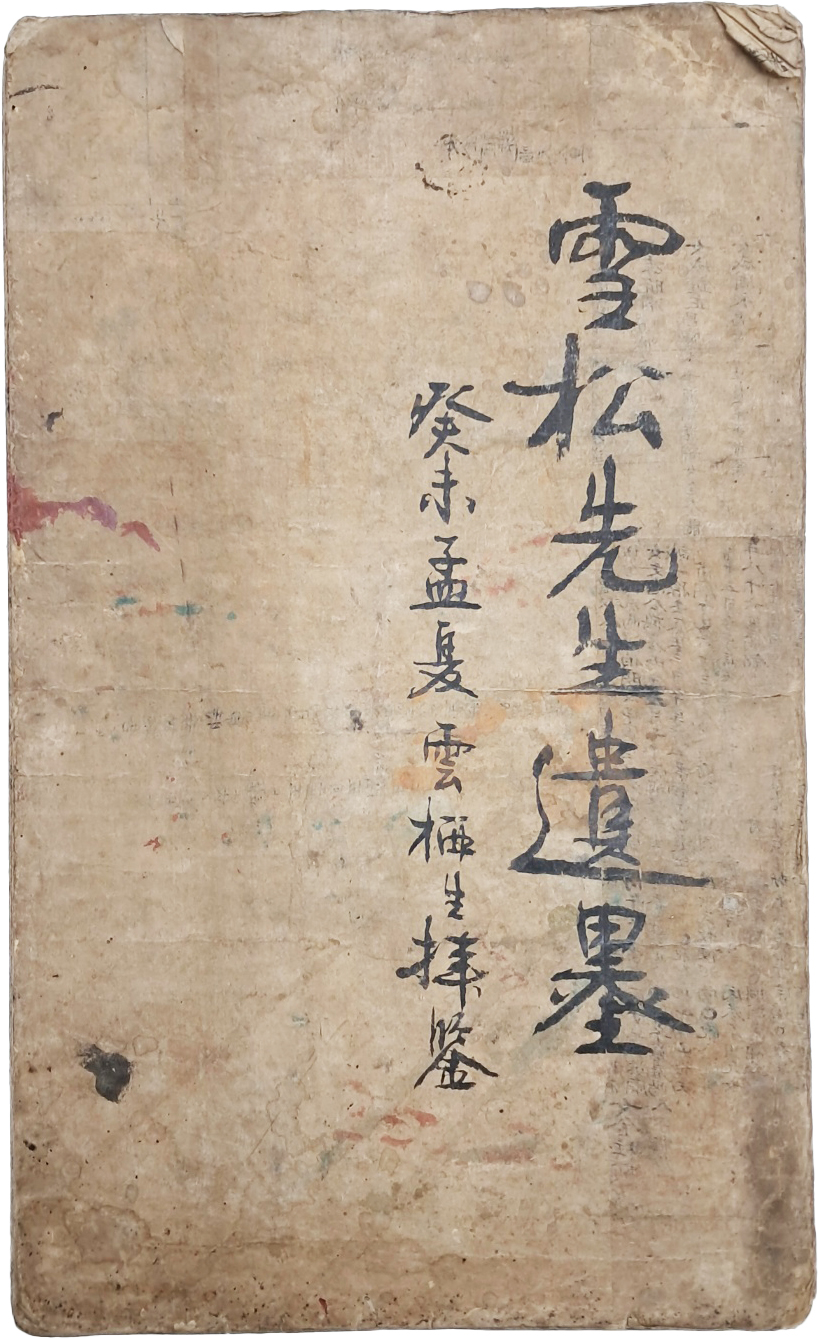 雪松先生遺墨
癸未孟夏雲栖生拜鑒